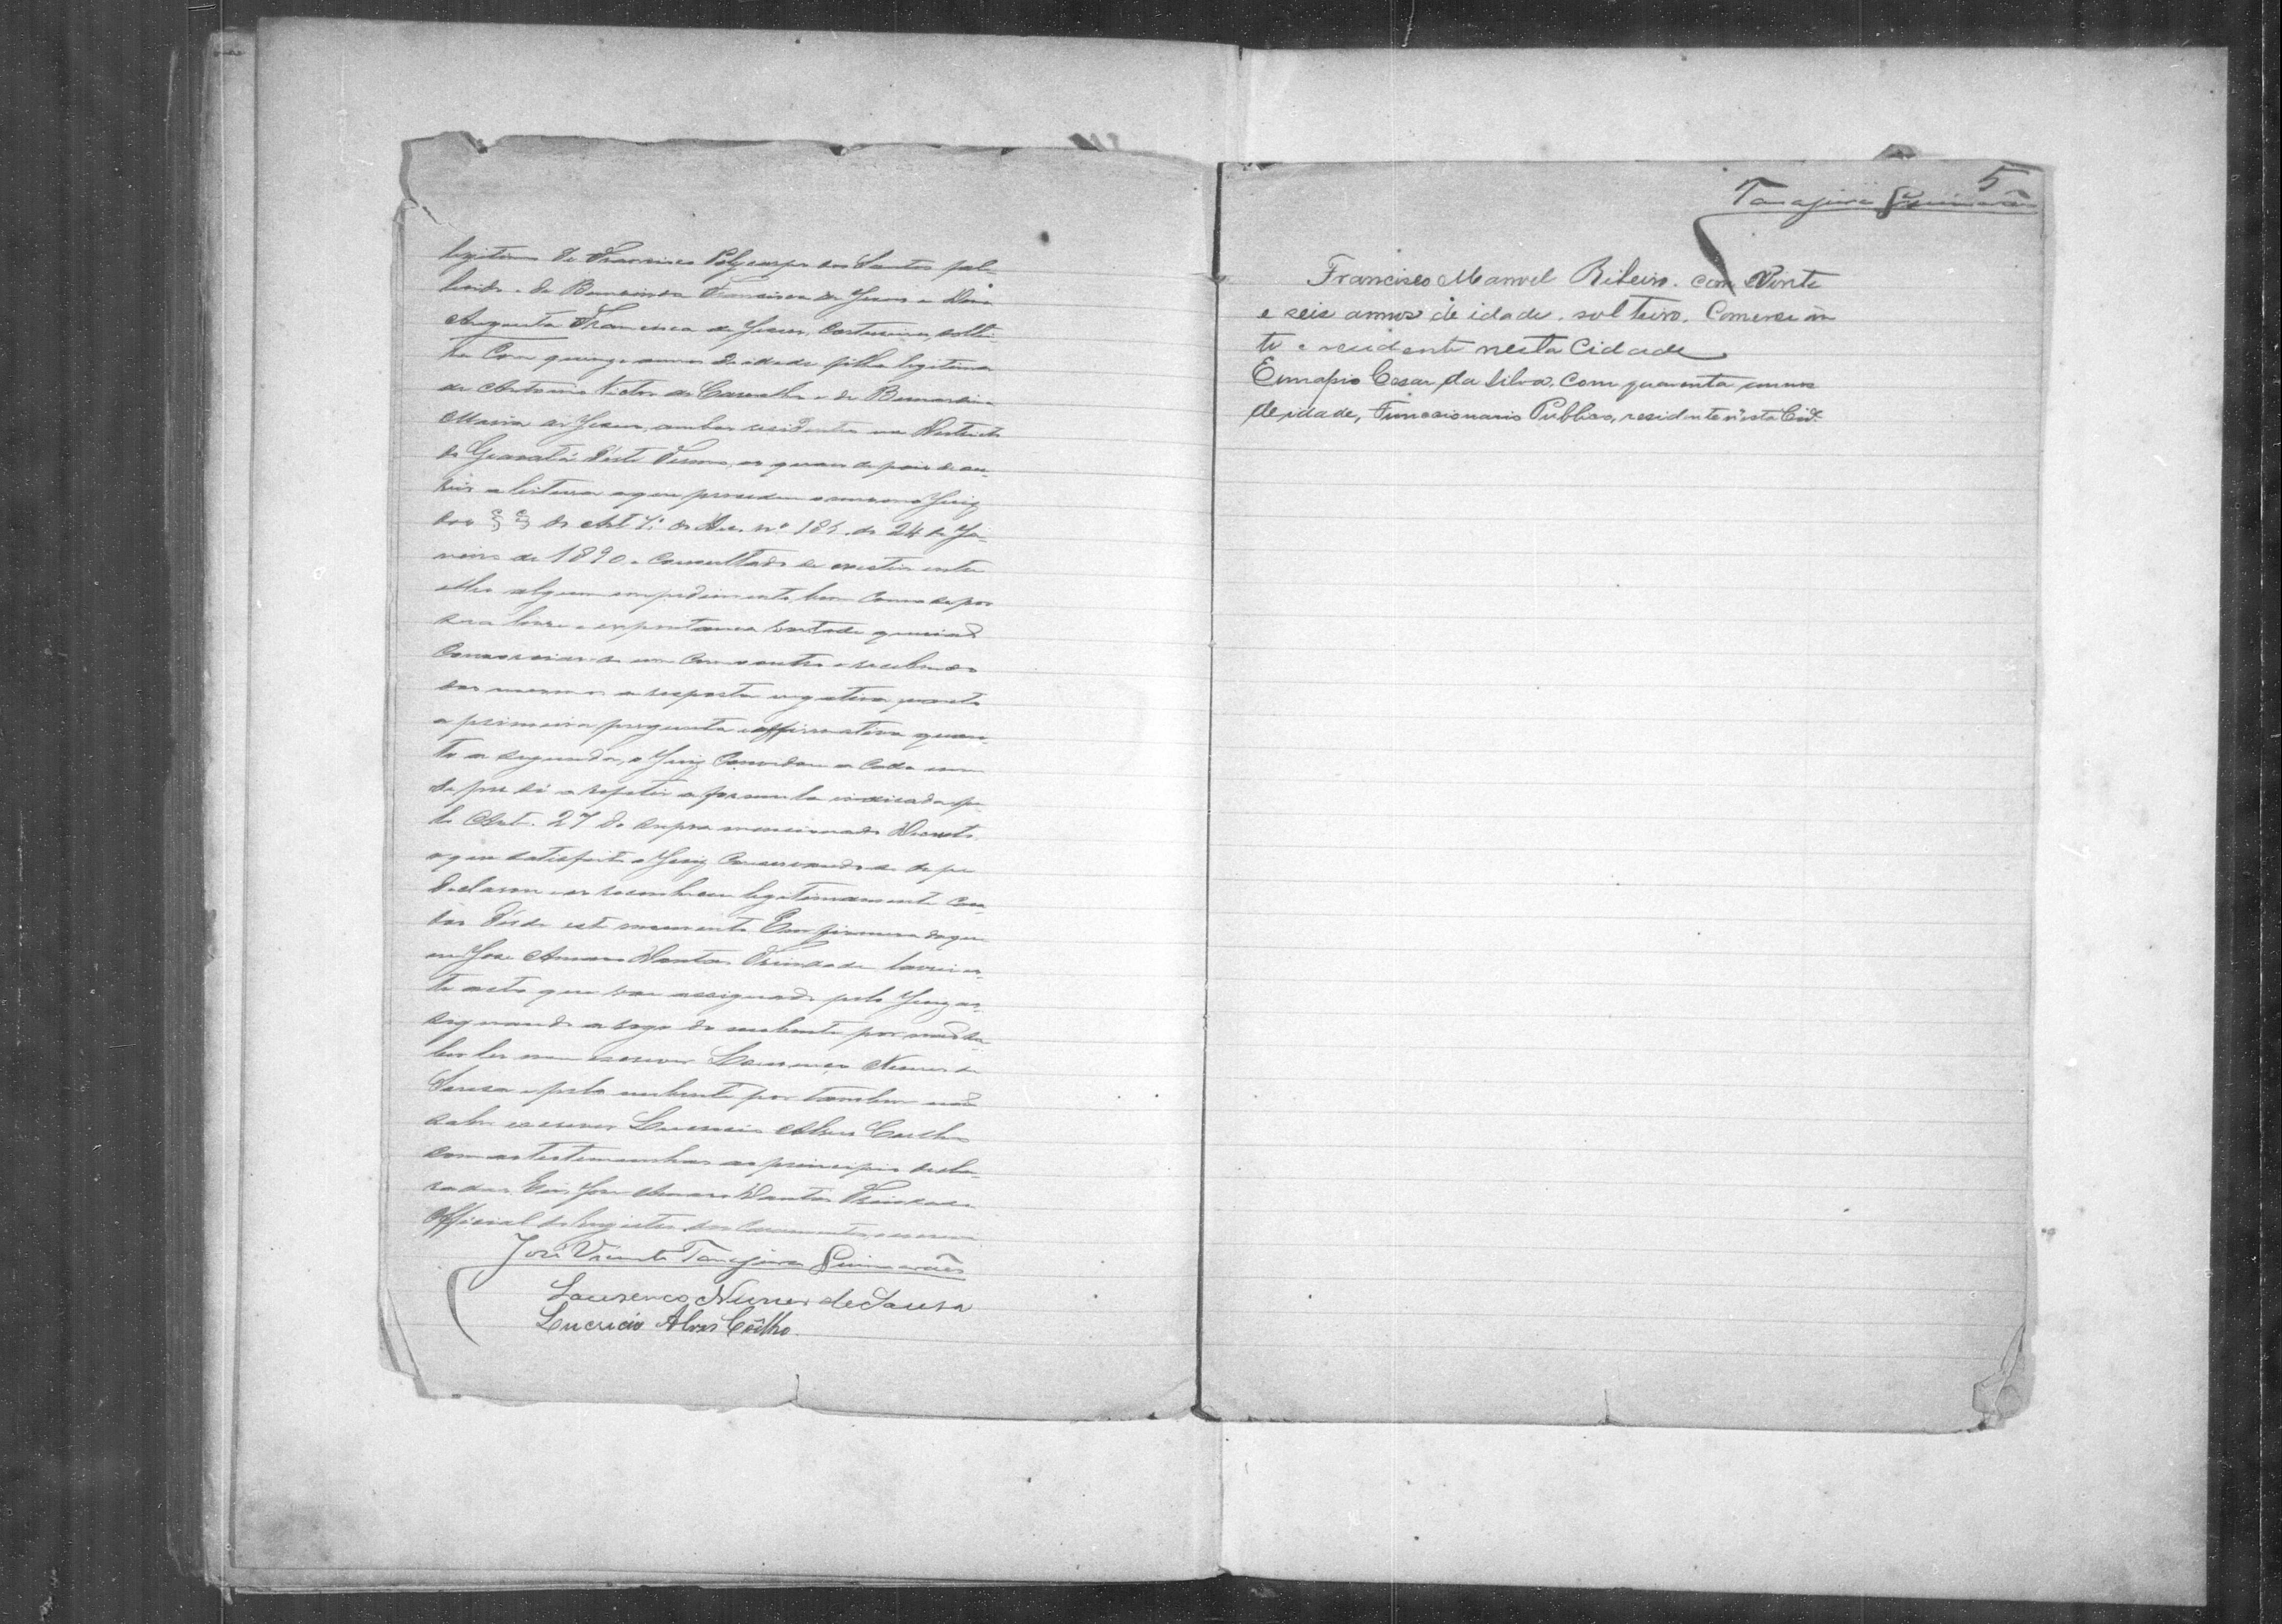 legitimo de Francisco Polycarpo dos Santos fal-
lecido e de Francisca de Jesus e Dona
Augusta Francisca de Jesus, Costureira, soltei-
ra com quinze annos de idade filha legitima
de Antonio Victor de Carvalho e de Bernardina
Maria de Jesus, ambos residentes no Districto
de Gravatá d'este Termo, os quaes depois de ou-
vir a leitura a que procedeu o mesmo Juiz
dos §§ do Art 7º do Dec. nº 181 de 24 de Ja-
neiro de 1890 e consultado se existia entre
elles algum impedimento, bem como se por
sua livre e espontanea vontade queriaõ
um com outro e recebendo
dos mesmos a resposta negativa quanto
a primeira pergunta e affirmativa quan-
to a segunda, o Juiz convidou a cada um
de per si a repetir a formula indicada pe-
lo Art. 27 do supra mencionado Decreto,
o que satisfeito o Juiz conservando-se de pé
declarou e os reconheceu legitimamente casa-
dos desde este momento. Em firmeza do que
eu José Amaro Dantas Trindade lavrei es-
te acto que vae assignado pelo Juiz as-
signando a rogo do nubente por não sa-
ber ler nem escrever Lourenço Nunes de
Sousa e pela nubente por tambem não
saber escrever Lucricio Alves Coelho
com as testemunhas ao principio decla-
radas. Eu, José Amaro Dantas Trindade
Official do Registro dos Casamentos, escrevi
José Vicente Tanajura Guimarães
Lourenço Nunes de Sousa
Lucricio Alves Coêlho.
5
Tanajura Guimarães
Francisco Manoel Ribeiro. com Vinte
e seis annos de idade. solteiro. Comercian
te e residente nesta Cidade
Eunapio Cesar da Silva, com quarenta annos
de idade, Funccionario Publico, residente n'esta Cidᵉ.